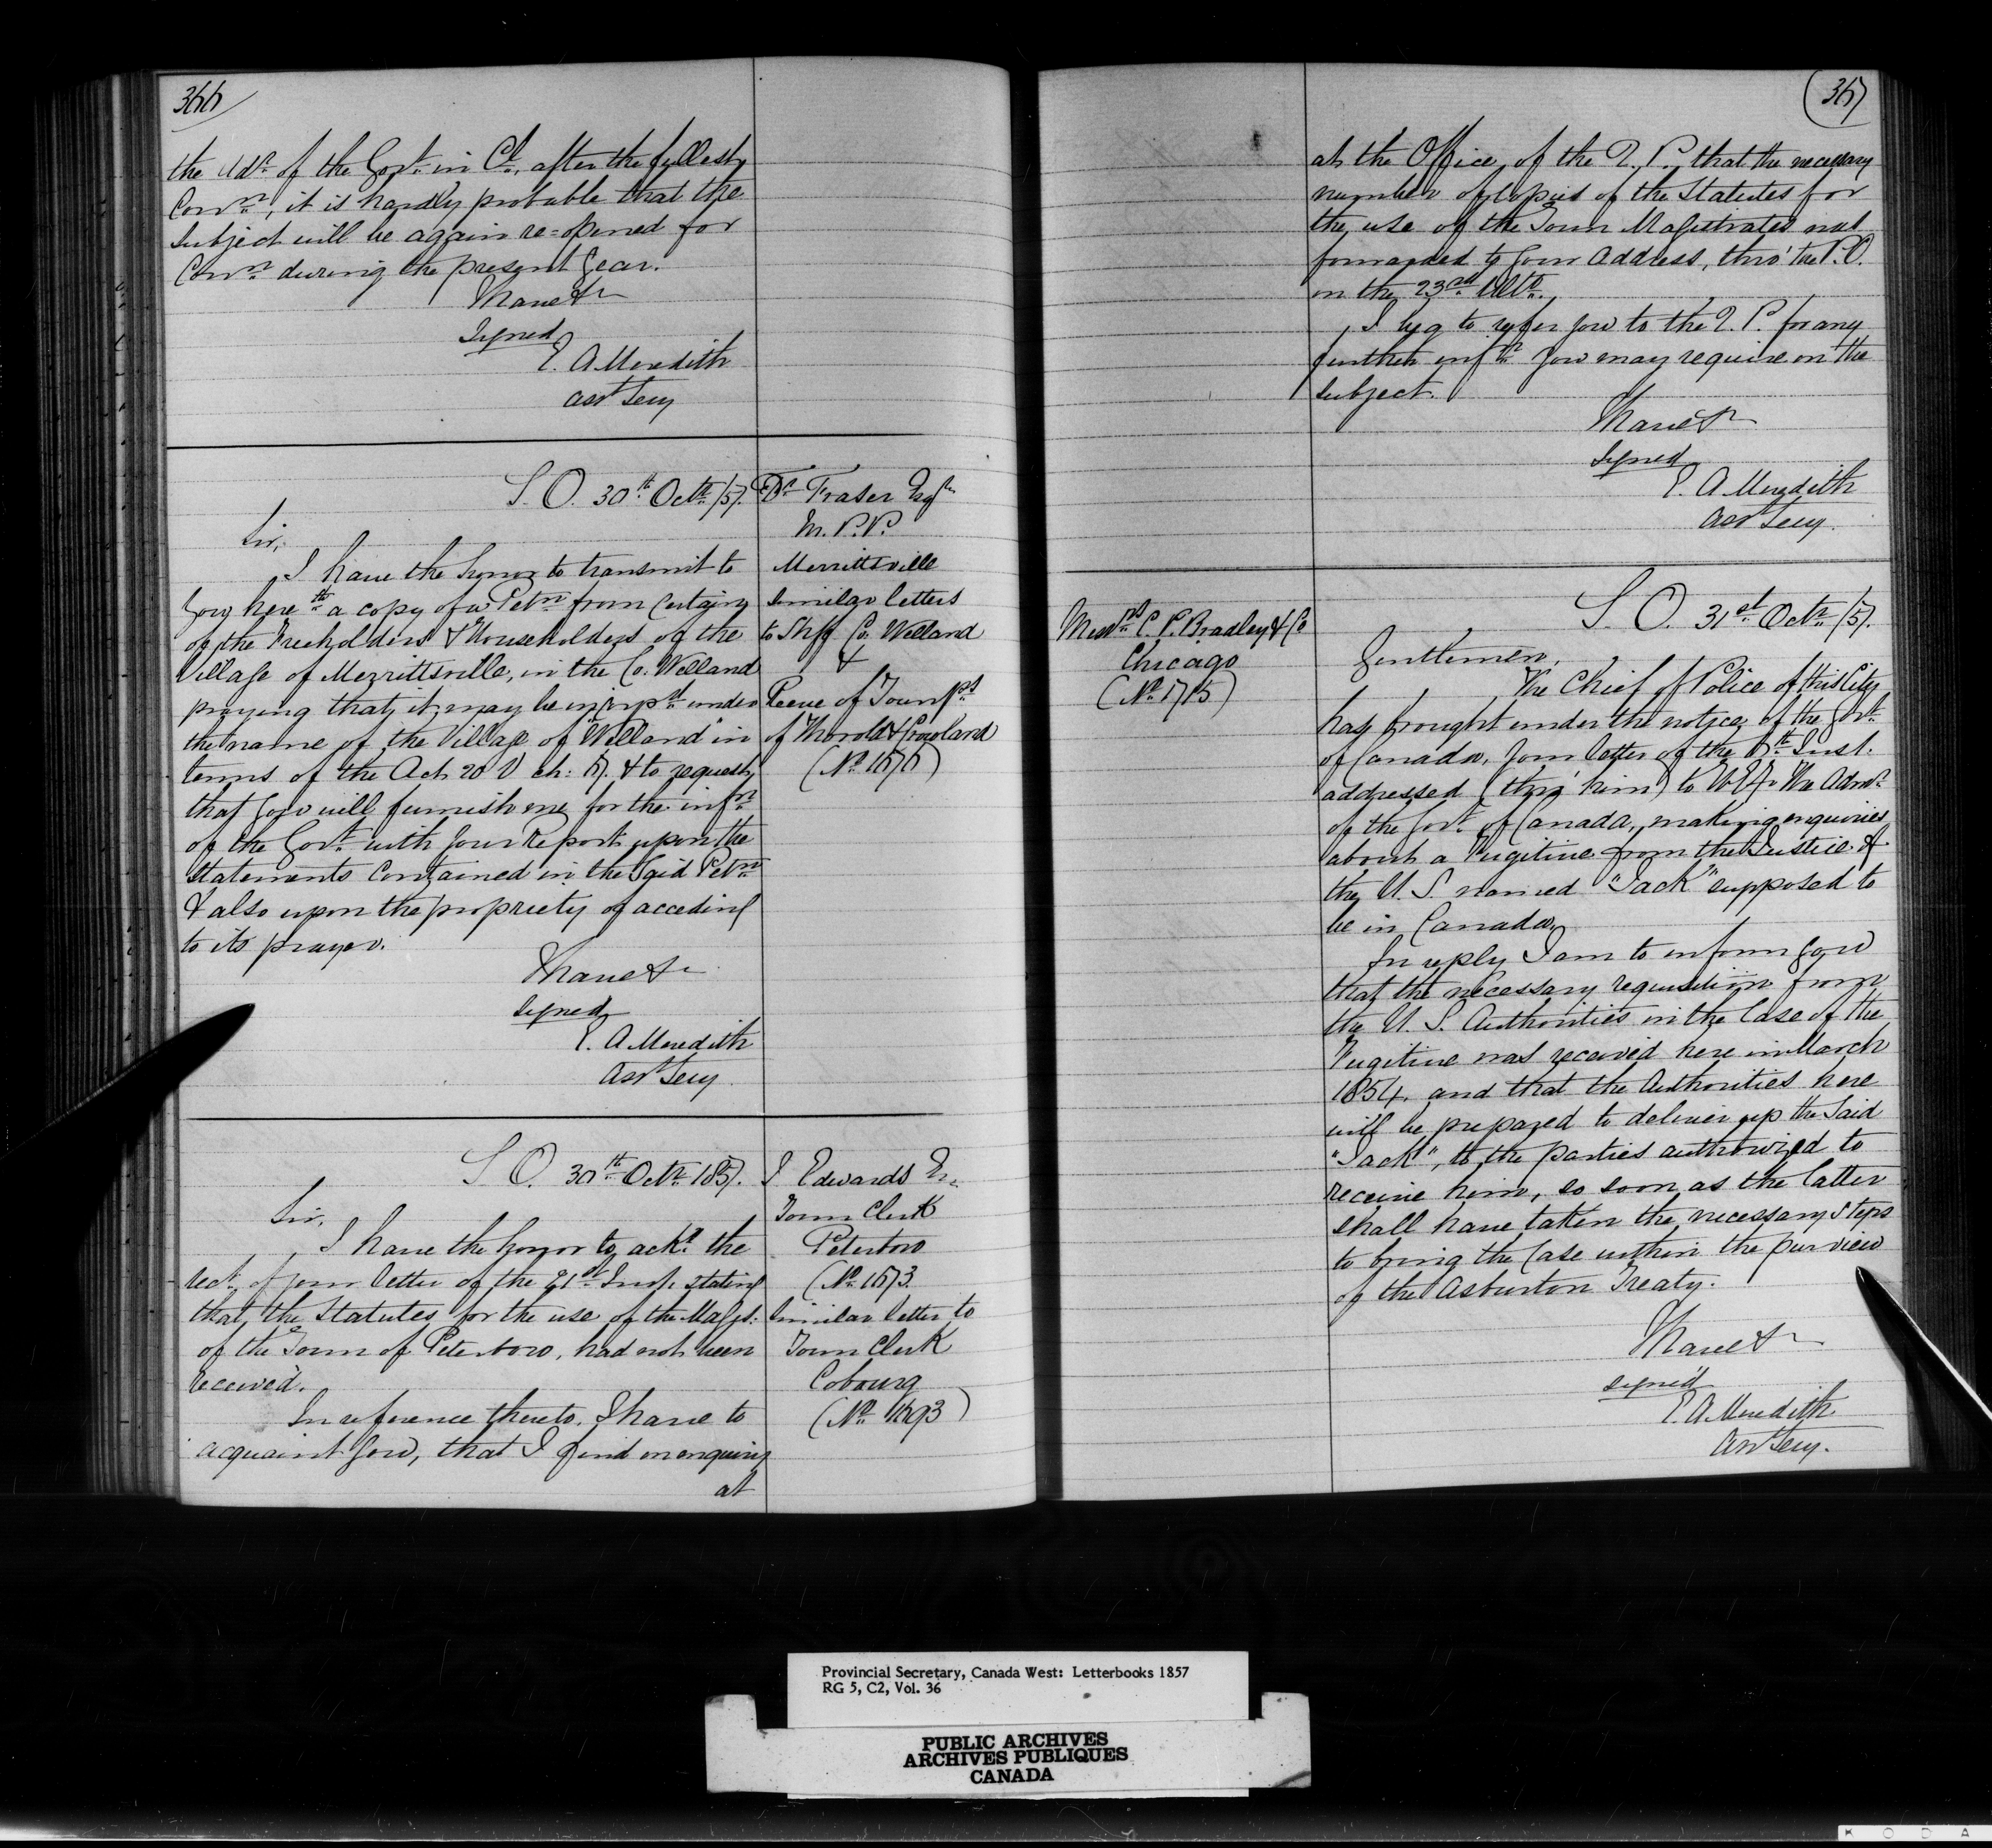 366
the Adn of the Govt in Cl, after the fullest
Conn, it is hardly probable that the
subject will be again re=opened for
Conn during the present Year.
I have &c
Signed
E. A Meredith
Asst Secy
S. O. 30th Octr /57.
Dr Fraser Esqr
M. P. P.
Merrittsville
Similar letters
to Shff Co. Welland
&
Reeve of Townps
of Thorold & Crowland
(No 1676)
Sir,
I have the honor to transmit to
You hereth a copy of a Petn from Certain
of the Freeholders & Householders of the
Village of Merrittsville, in the Co. Welland
praying that it may be incorpd under
the name of the Village of "Welland" in
terms of the Act 20 V ch: 67. & to request
that You will furnish me for the infn
of the Govt with Your Report upon the
Statements Contained in the Said Petn
& also upon the propriety of acceding
to its prayer.
I have &c
Signed
E. A Meredith
Asst Secy.
S. O. 30th Octr 1857.
J Edwards Er
Town Clerk
Peterboro
(No 1673
Similar letter to
Town Clerk
Cobourg
(No 1693)
Sir,
I have the honor to acke the
rect of your letter of the 21st Inst, stating
that the Statutes for the use of the Magst:
of the Town of Peterboro, had not been
received.
In reference thereto, I have to
acquaint You, that I find on enquiry
at
367
at the Office of the Q. P. that the necessary
number of Copies of the Statutes for
the use of the Town Magistrates was
forwarded to Your Address, thro' the P.O.
on the 23rd Ulto.
I beg to refer you to the Q. P. for any
further infn You may require on the
subject.
I have &c
Signed
E. A Meredith
Asst Secy.
Messrs C. P. Bradley & Co
Chicago
(No 1715)
S. O. 31st Octr /57.
Gentlemen,
The Chief of Police of this City
has brought under the notice of the Govt
of Canada, Your letter of the 6th Inst.
addressed (thro' him) to H. E. The Admr
of the Govt of Canada, making enquiries
about a Fugitive from the Justice of
the U. S. named "Jack" supposed to
be in Canada.
In reply I am to inform You
that the necessary requisition from
the U. S. Authorities in the Case of the
Fugitive was received here in March
1854, and that the Authorities here
will be prepared to deliver up the Said
"Jack", to the parties authorized to
receive him, so soon as the latter
shall have taken the necessary steps
to bring the Case within the purview
of the Asburton Treaty.
I have &c
signed
E. A. Meredith
Asst Secy.
Provincial Secretary, Canada West: Letterbooks 1857
RG 5, C2, Vol. 36
PUBLIC ARCHIVES
ARCHIVES PUBLIQUES
CANADA
K O D A